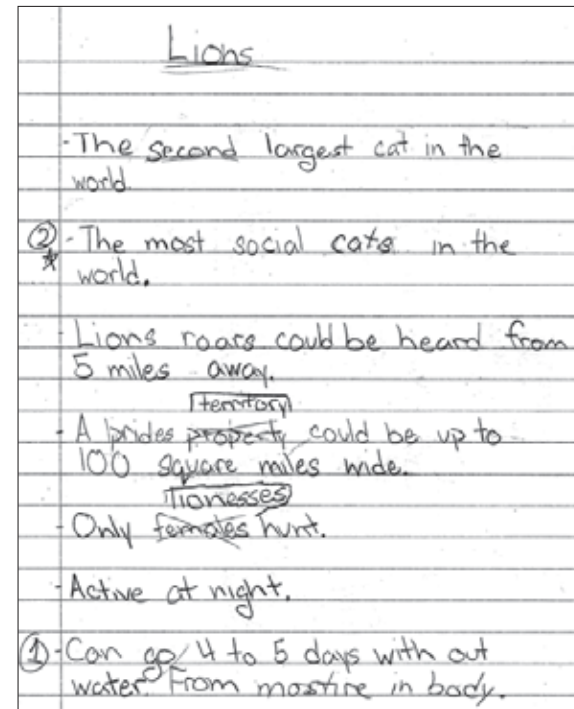 Lions
- The second largest cat in the
world.
② - The most social cats in the
★ world.
- Lions roars could be heard from
5 miles away.
territory
- A prides property could be up to
100 square miles wide.
lionesses
- Only females hunt.
- Active at night.
① - Can go 4 to 5 days with out
water. From mostire in body.